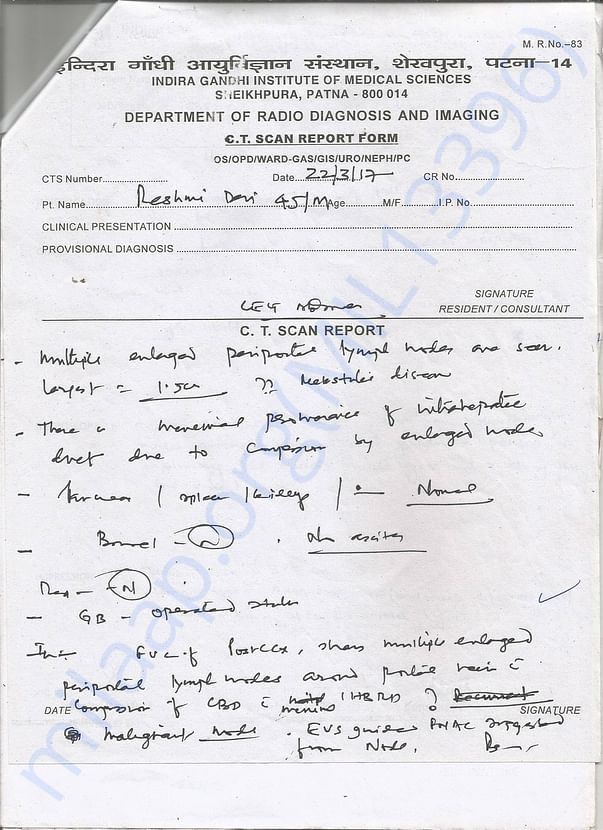 M. R.No.–83
इन्दिरा गाँधी आयुर्विज्ञान संस्थान, शेखपुरा, पटना–14
INDIRA GANDHI INSTITUTE OF MEDICAL SCIENCES
SHEIKHPURA, PATNA - 800 014
DEPARTMENT OF RADIO DIAGNOSIS AND IMAGING
C.T. SCAN REPORT FORM
OS/OPD/WARD-GAS/GIS/URO/NEPH/PC
CTS Number Date 22/3/17 CR No.
Pt. Name Reshmi Devi 45/M Age M/F I.P. No.
CLINICAL PRESENTATION
PROVISIONAL DIAGNOSIS
SIGNATURE
CECT Abdomen RESIDENT / CONSULTANT
C. T. SCAN REPORT
- Multiple enlarged periportal lymph nodes are seen.
largest = 1.5cm ??
- There is prominence of intrahepatic
duct due to compression by enlarged nodes
- Pancreas / spleen / kidneys / Normal
- Bowel - N . No ascites
- N
- GB - operated
FUC of Post CCx, shows multiple enlarged
periportal lymph nodes around portal vein c
DATE compression of CBD c minimal IHBRD ? SIGNATURE
malignant node . EUS guided FNAC suggested
from Node.
milaap.org(MIL13396)